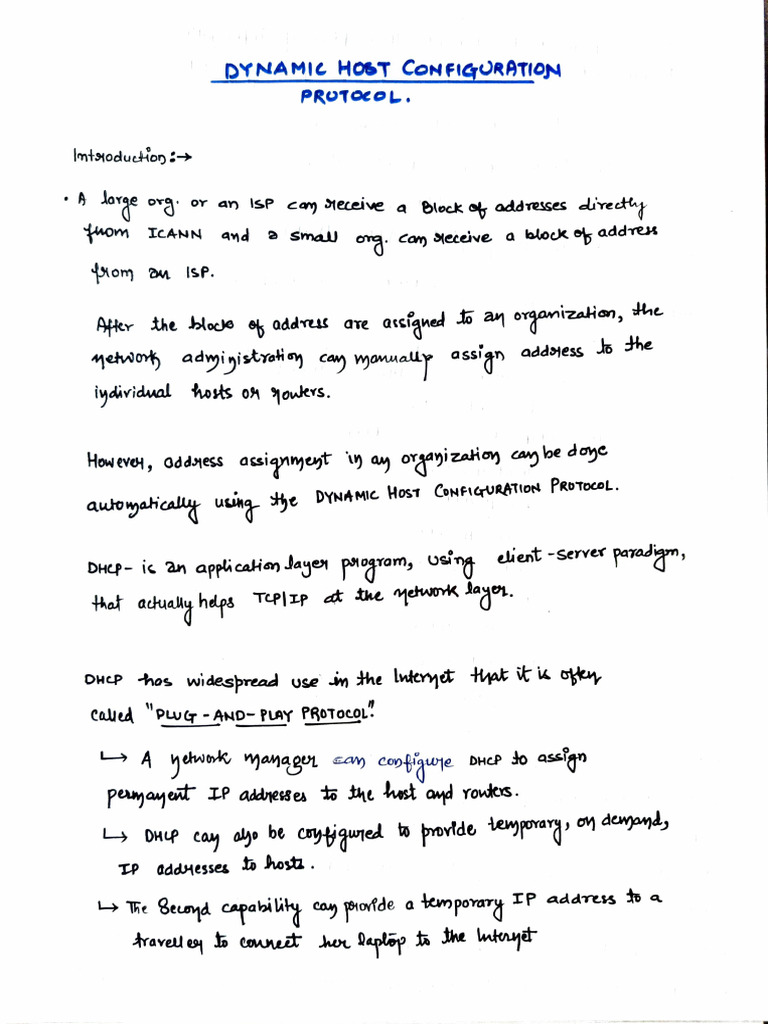 DYNAMIC HOST CONFIGURATION
PROTOCOL.
Introduction:→
• A large org. or an ISP can receive a Block of addresses directly
from ICANN and a small org. can receive a block of address
from an ISP.
After the blocks of address are assigned to an organization, the
network administration can manually assign address to the
individual hosts or routers.
However, address assignment in an organization can be done
automatically using the DYNAMIC HOST CONFIGURATION PROTOCOL.
DHCP- is an application layer program, using client-server paradigm,
that actually helps TCP/IP at the network layer.
DHCP has widespread use in the Internet that it is often
called "PLUG-AND-PLAY PROTOCOL".
↳ A network manager can configure DHCP to assign
permanent IP addresses to the host and routers.
↳ DHCP can also be configured to provide temporary, on demand,
IP addresses to hosts.
↳ The Second capability can provide a temporary IP address to a
traveller to connect her laptop to the Internet